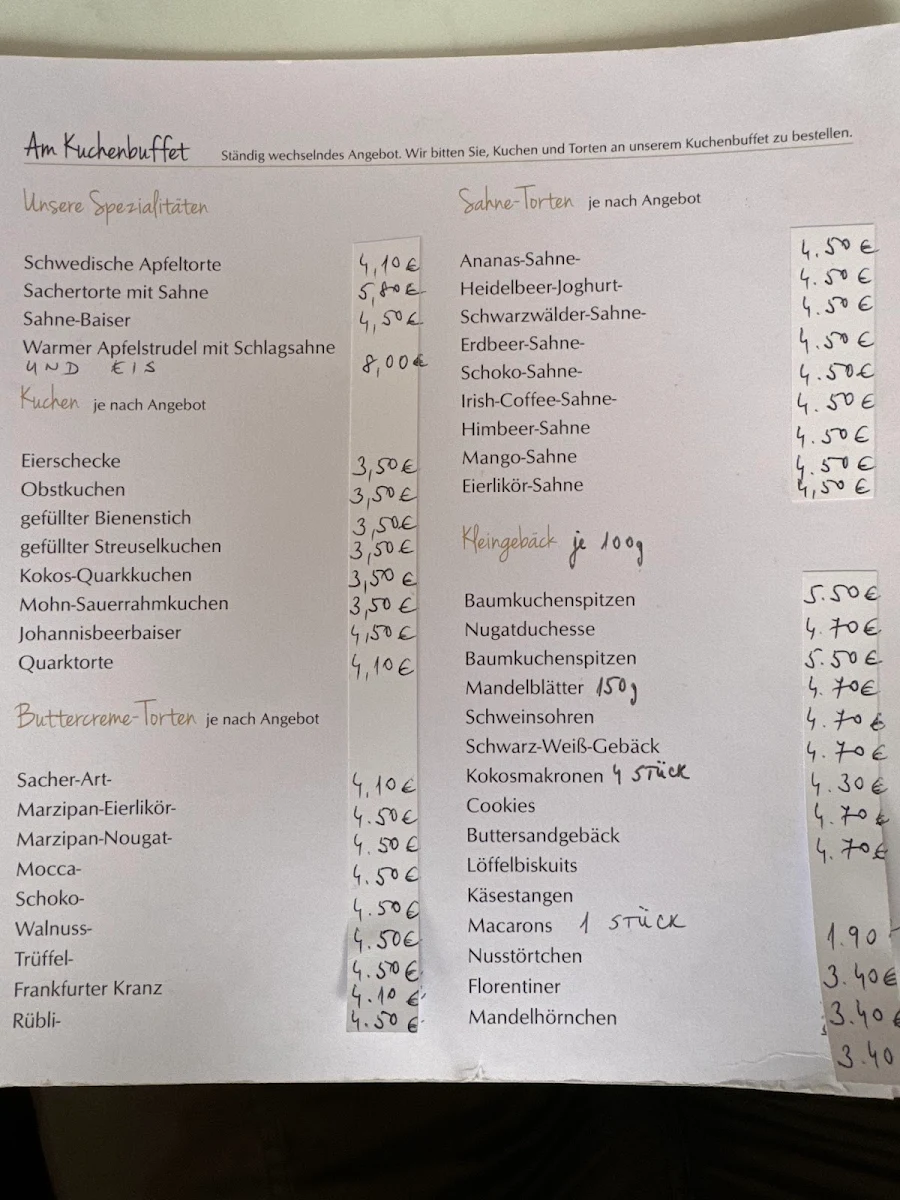 Am Kuchenbuffet Ständig wechselndes Angebot. Wir bitten Sie, Kuchen und Torten an unserem Kuchenbuffet zu bestellen.
Unsere Spezialitäten
Schwedische Apfeltorte 4,10 €
Sachertorte mit Sahne 5,80 €
Sahne-Baiser 4,50 €
Warmer Apfelstrudel mit Schlagsahne
UND EIS 8,00 €
Kuchen je nach Angebot
Eierschecke 3,50 €
Obstkuchen 3,50 €
gefüllter Bienenstich 3,50 €
gefüllter Streuselkuchen 3,50 €
Kokos-Quarkkuchen 3,50 €
Mohn-Sauerrahmkuchen 3,50 €
Johannisbeerbaiser 4,50 €
Quarktorte 4,10 €
Buttercreme-Torten je nach Angebot
Sacher-Art- 4,10 €
Marzipan-Eierlikör- 4.50 €
Marzipan-Nougat- 4.50 €
Mocca- 4.50 €
Schoko- 4.50 €
Walnuss- 4.50 €
Trüffel- 4.50 €
Frankfurter Kranz 4.10 €
Rübli- 4.50 €
Sahne-Torten je nach Angebot
Ananas-Sahne- 4.50 €
Heidelbeer-Joghurt- 4.50 €
Schwarzwälder-Sahne- 4.50 €
Erdbeer-Sahne- 4.50 €
Schoko-Sahne- 4.50 €
Irish-Coffee-Sahne- 4.50 €
Himbeer-Sahne 4.50 €
Mango-Sahne 4.50 €
Eierlikör-Sahne 4,50 €
Kleingebäck je 100g
Baumkuchenspitzen 5.50 €
Nugatduchesse 4.70 €
Baumkuchenspitzen 5.50 €
Mandelblätter 150g 4.70 €
Schweinsohren 4.70 €
Schwarz-Weiß-Gebäck 4.70 €
Kokosmakronen 4 STÜCK 4.30 €
Cookies 4.70 €
Buttersandgebäck 4.70 €
Löffelbiskuits
Käsestangen
Macarons 1 STÜCK 1.90
Nusstörtchen 3.40 €
Florentiner 3.40 €
Mandelhörnchen 3.40